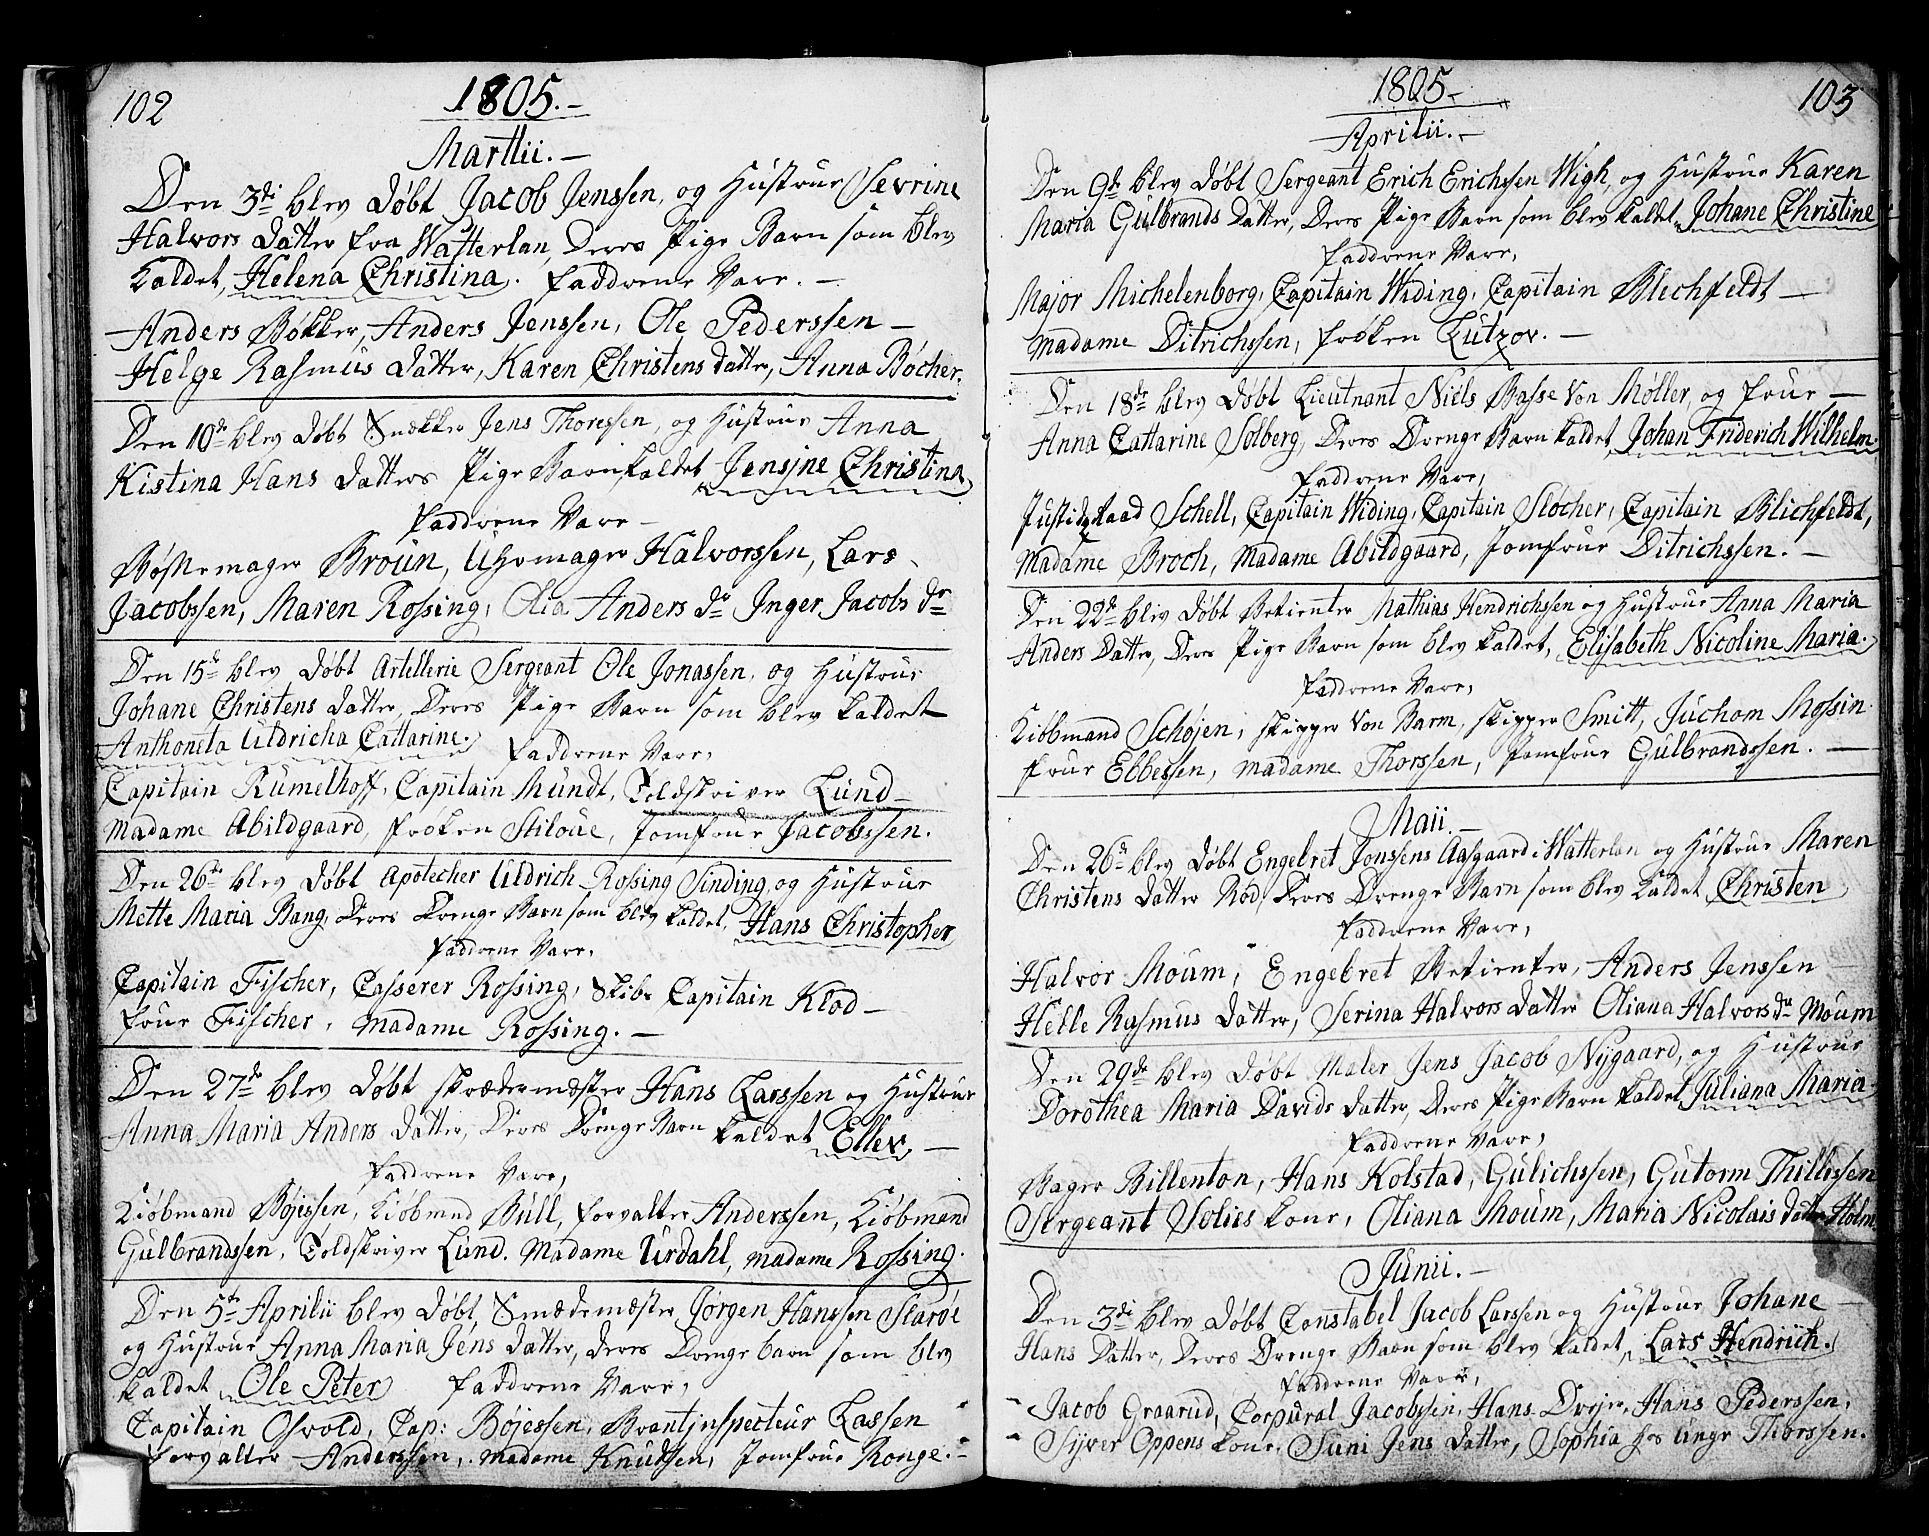 102
1805.-
Martii.-
Den 3di blev Døbt Jacob Jenssen, og Hustrue Sevrine
Halvors Datter fra Watterlan, Deres Pige Barn som blev
kaldet, Helena Christina. Faddrene Vare.-
Anders Bøkker, Anders Jenssen, Ole Pederssen-
Helge Rasmus Datter, Karen Christens Datter, Anna Bøcher.
Den 10de blev Døbt Snekker Jens Thoressen, og Hustrue Anna
Kistina Hans Datters Pige Barn kaldet Jensine Christina
Faddrene Vare-
Bøssemager Broun, Uhrmager Halvorssen, Lars
Jacobssen, Maren Rossing, Olia Anders dr Inger Jacobs dr
Den 15de blev Døbt Artillerie Sergeant Ole Jonassen, og Hustrue
Johane Christens Datter, Deres Pige Barn som blev kaldet
Anthoneta Uldricha Cattarine. Faddrene Vare,
Capitain Rumelhoff, Capitain Mundt, Toldskriver Lund-
Madame Abildgaard, Frøken Stiloue, Jomfrue Jacobssen.
Den 26de blev Døbt Apotecher Uldrich Rossing Sinding, og Hustrue
Mette Maria Bang, Deres Drenge Barn som blev kaldet, Hans Christopher
Faddrene Vare,
Capitain Fischer, Casserer Rossing, Skibs Capitain Klod-
Frue Fischer, Madame Rossing.-
Den 27de blev Døbt Skrædermæster Hans Larssen og Hustrue
Anna Maria Anders Datter, Deres Drenge Barn kaldet Ellev-
Faddrene Vare,
Kiøbmand Bøjessen, Kiøbmnd Bull, Forvalter Anderssen, Kiøbmand
Gulbrandssen, Toldskriver Lund. Madame Urdahl, Madame Rossing.
Den 5te Aprilii blev Døbt, Smædemæster Jørgen Hanssen Slarøe
og Hustrue Anna Maria Jens Datter, Deres Drenge barn som blev
kaldet Ole Peter Faddrene Vare,
Capitain Osvold, Cap: Bøjessen, Brantjnspecteur Lassen
Forvalter Anderssen, Madame Knudssen, Jomfrue Ronge.-
1805.-
103
Aprilii.-
Den 9de blev Døbt Sergeant Erich Erichssen Wigh, og Hustrue Karen
Maria Gulbrands Datter, Deres Pige Barn som blev kaldet Johane Christine
Faddrene Vare,
Major Michelenborg, Capitain Widing, Capitain Blechfeldt-
Madame Ditrichssen, Frøken Lutzov.-
Den 18de blev Døbt Lieutnant Niels Basse Von Møller, og Frue-
Anna Cattarine Sølberg, Deres Drenge Barn kaldet Johan Friderich Wilhelm.
Faddrene Vare,
Justidzraad Schell, Capitain Widing, Capitain Slocher, Capitain Blichfeldt,
Madame Broch, Madame Abildgaard, Jomfrue Ditrichssen.-
Den 22de blev Døbt Betienter Mathias Hendrichssen og Hustrue Anna Maria
Anders Datter, Deres Pige Barn som blev kaldet, Elisabeth Nicoline Maria.
Faddrene Vare,
Kiøbmand Schøjen, Skipper Von Barm, Skipper Smitt, Juchom Mossin
Frue Ebbessen, Madame Thorssen, Jomfrue Gulbrandssen.-
Maii.-
Den 26de blev Døbt Engebret Jonssens Aasgaard i Watterlan og Hustrue Maren
Christens Datter Rød, Deres Drenge Barn som blev kaldet Christen
Faddrene Vare,
Halvor Moum, Engebret Betienter, Anders Jenssen
Helle Rasmus Datter, Serina Halvors Datter Oliana Halvors dr Moum
Den 29de blev Døbt Maler Jens Jacob Nijgaard, og Hustrue
Dorothea Maria Davids Datter, Deres Pige Barn kaldet Juliana Maria
Faddrene Vare,
Bager Billenton, Hans Kolstad, Gulichssen, Gutorm Thillissen
Sergeant Solies kone, Oliana Moum, Maria Nicolais Datter Holm
Junii.-
Den 3di blev Døbt Constabel Jacob Larssen og Hustrue Johane
Hans Datter, Deres Drenge Barn som blev kaldet Lars Hendrich.
Faddrene Vare,
Jacob Graarud, Corpural Jacobssen, Hans Drejer, Hans Pederssen,
Sijver Oppens kone, Suni Jens Datter, Sophia hos Unge Thorssen.